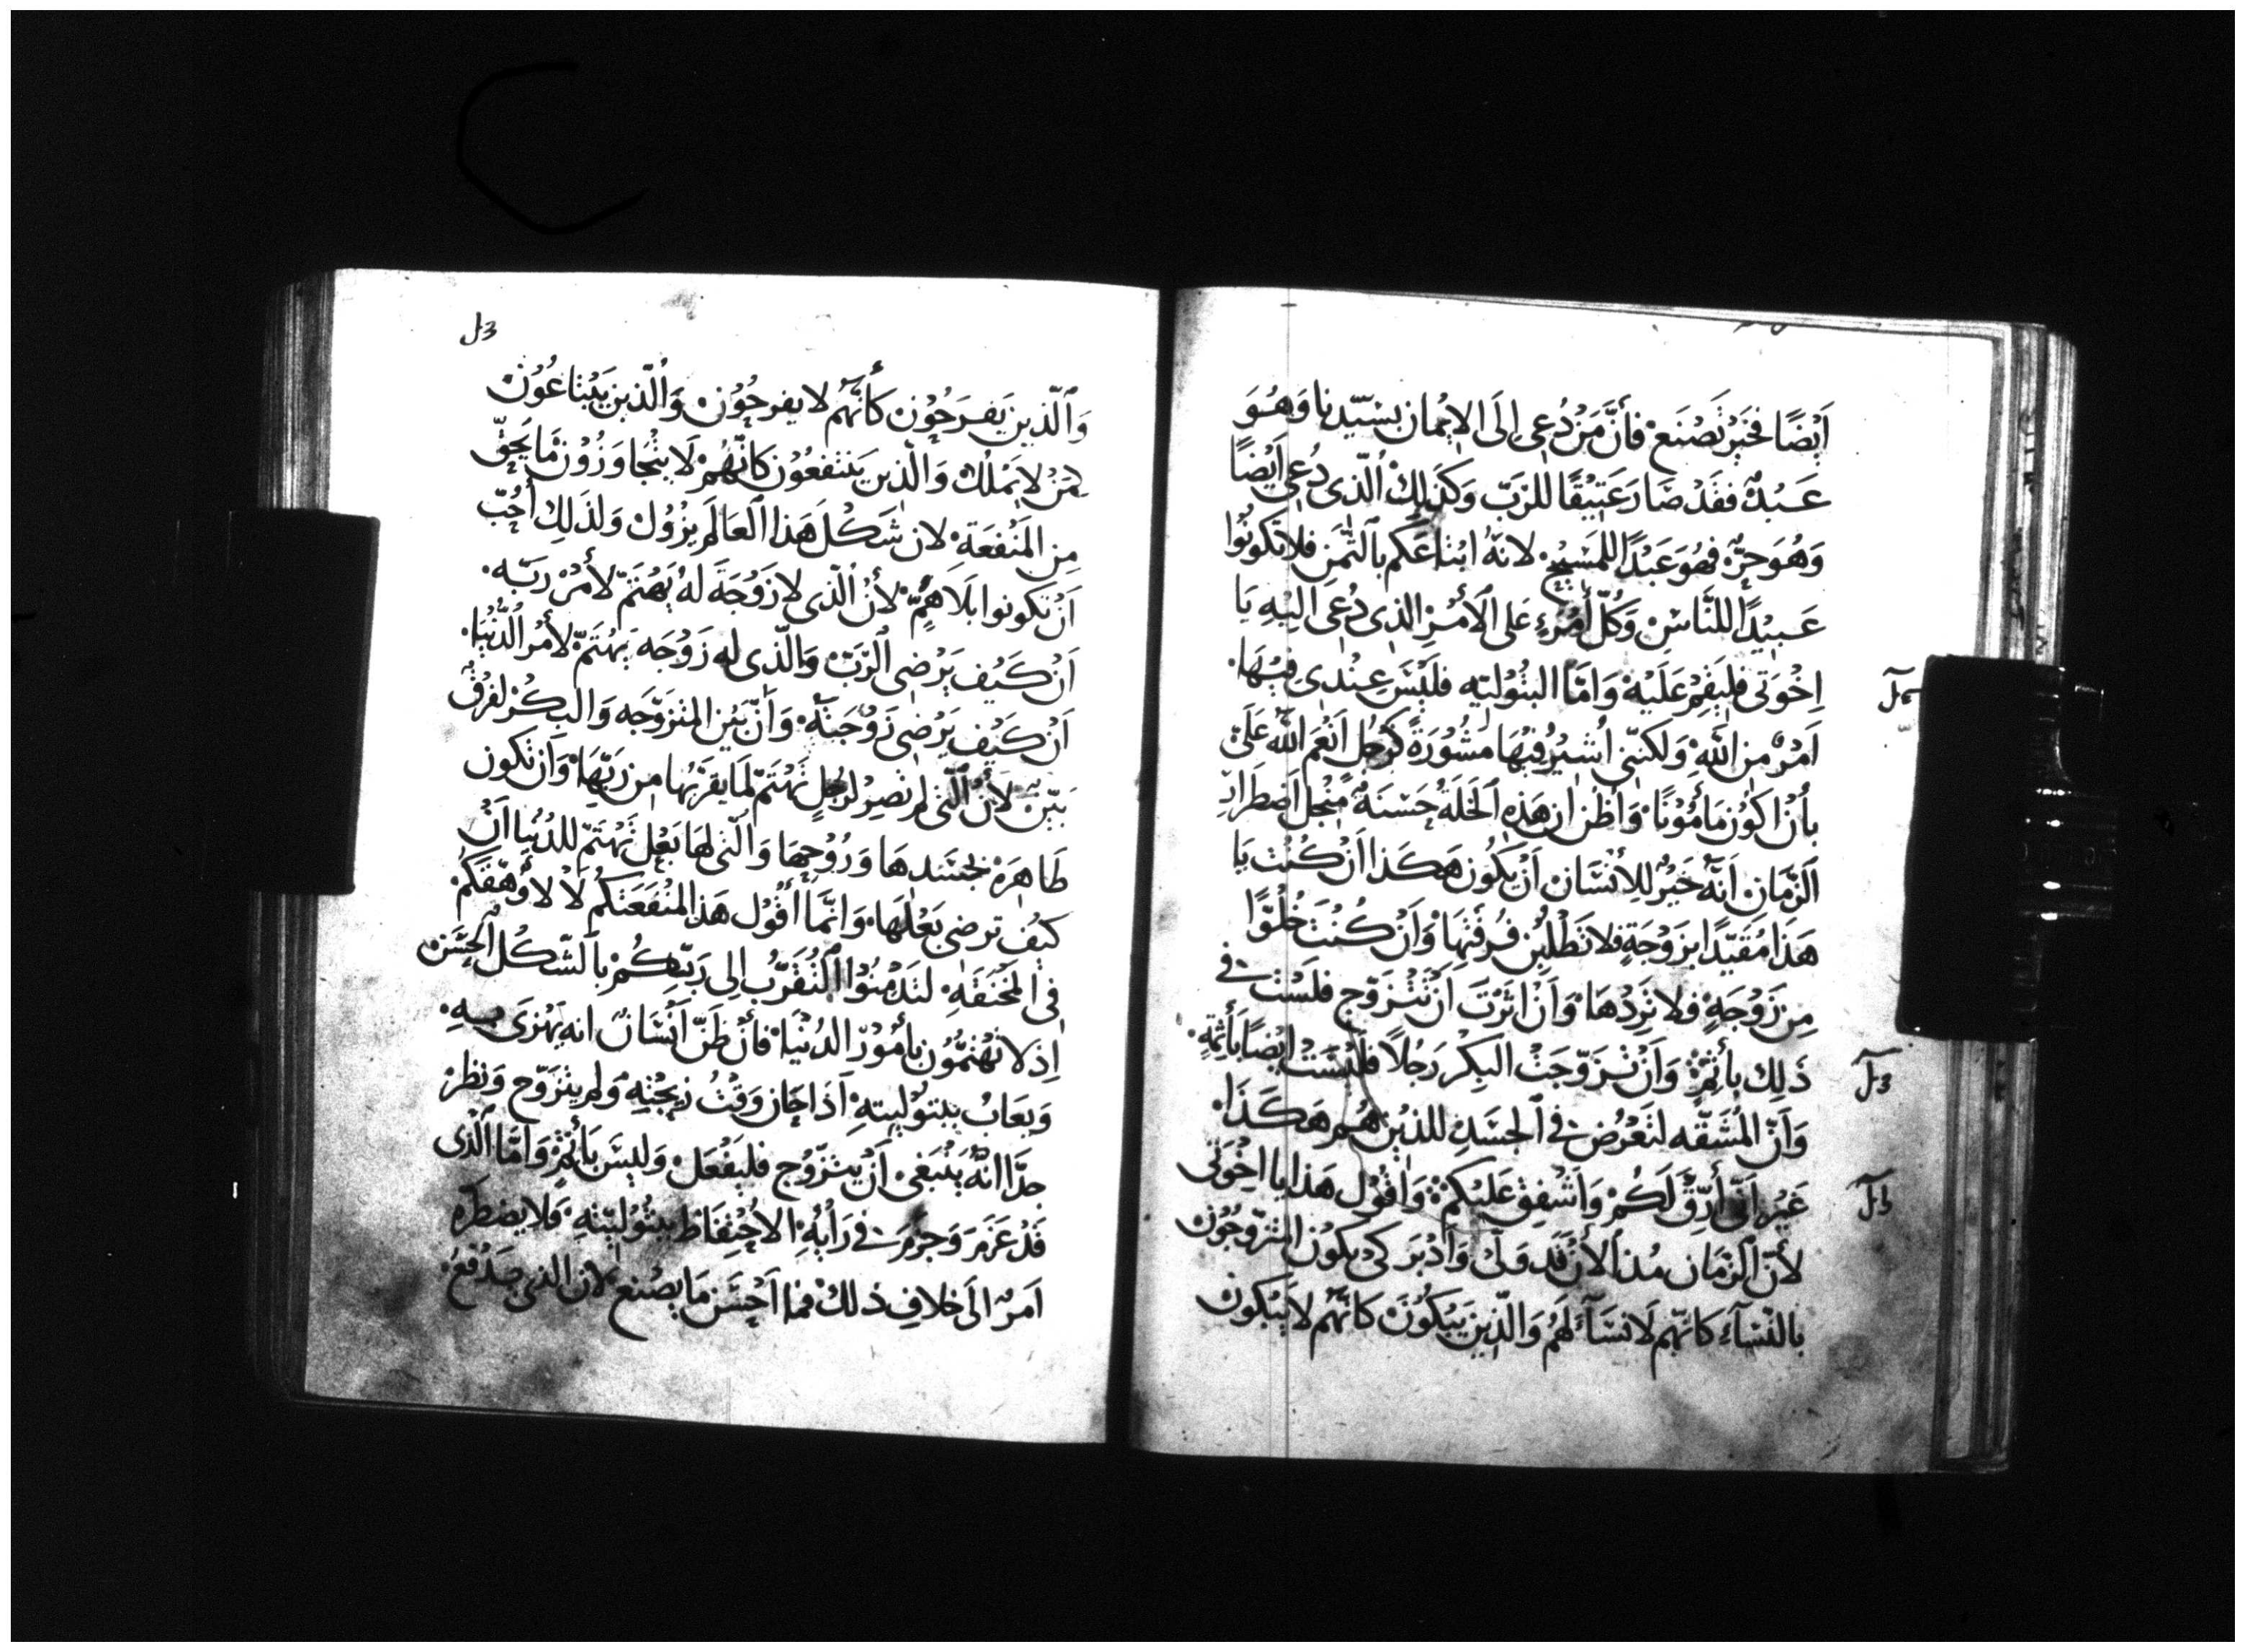 اَيْضًا فخَيْر تَصْنَع فأنَّ مَنْ دُعِي اِلَى الايمان بسَيّدنا وَهُوَ
عَبْدٌ فقَدْ صَارَ عَتِيْقًا للرَبّ وَكَذلِكَ الّذي دُعِي اَيْضًا
وَهُوَ حرٌّ فهُوَ عَبْدًا للمَسِيْح لانهُ ابْتاعَكم بالثمَن فلا تكونُوا
عَبيْدًا للنَّاسِ وَكُلّ أمْرءٍ عَلى الأمْرِ الذِي دُعِي اليْهِ يَا
اِخْوَتي فليَقمْ عَلَيْهْ وَامَّا البتُوليَّه فليْسَ عِنْدي فيْهَا
اَمْرٌ من اللهِ وَلكنّني اُشيْرُ فيْهَا مَشُوْرَةً كرَجُل اَنْعَم اللهُ عَلَيّ
بأنْ اكوْن مَأمُوْنًا وَأظُن ان هَذِهِ الخَلة حَسَنَة منْجل اضطرَار
الزَّمَان اَنَّهُ خَيْرٌ للأنْسَان اَنْ يَكُون هَكَذا اَنْ كُنْت يَا
هَذا مُقَيّدًا بزَوْجَةٍ فلا تَطْلبْن فُرقتَهَا وَاَنْ كُنْتَ خُلوًّا
مِن زَوْجَةٍ فلا تردْهَا وَاَنْ اَثرْتَ اَنْ تَتْزَوّج فلسْت في
ذَلِك بأثِمٍ وَاَنْ تزَوّجَتْ البكْر رَجُلاً فليْسَتْ ايْضًا بَأثمَةٍ
وَاَنّ المُشَقّه لتَعْرُض في الجسَدِ للذيْن هُم هَكَذَا
غَيْر اَنّي أرّقّ لَكُمْ وَاَشْفِق عَلَيْكمْ وَاقُوْل هَذا يا اخْوَتي
لأنّ الزمَان مُنذ الأنْ قَد وَلّى وَأدْبَر كيْ يكوْن المتزوّجُوْن
بالنْسَاءِ كانّهم لا نسَآءَ لهُم وَالّذِين يَبْكوْن كانّهُم لا يَبْكون
وَالّذين يَفرَحُوْن كَأنّهُم لا يفرحُوْن وَالّذين يَبْتاعُوْن
كمَنْ لا يَمْلُك وَالّذِين يَنتفعُوْن كانّهُمْ لا يتْجاوَزُوْن مَا يَحِقّ
مِن المَنْفعَة لان شَكْل هَذا العَالَم يزُوْل وَلذَلِك أحُبّ
اَنْ تكونوا بلا هَمٍّ لأنْ الّذي لا زَوْجَةَ لهُ يَهْتَمّ لأمْر رَبّه
اَنْ كَيْف يَرْضى الرّبّ وَالّذي له زَوْجَه يَهْتَمّ لأمْر الدُّنْيَا
اَنْ كَيْف يَرْضى زَوْجَتهُ وَاَنّ بَيْن المتزوّجَه وَالبكْر لفرْق
بَيّن لأنْ الّتي لم تصِرْ لرَجُلٍ تَهْتَمّ لمَا يقرّبْها من رَبّهَا وَاَن تكون
طَاهِرَة بجسَدهَا وَرُوْحِهَا وَالّتي لهَا بَعْل تَهْتَمّ للدُنْيا اَنْ
كيْف ترضي بَعْلهَا وَانّمَا أقُوْل هَذا لمنْفَعَتكُم لاْ لأوهّقكُمْ
في المخْنَقَة لتَدْمنُوا التقرّب الى رَبّكُمْ بالشّكْل الحسَن
اِذ لا تهْتمُّون بأمُوْر الدُنْيَا فأنْ ظَنّ اَنْسَانٌ انه يَهْزَى به
وَيعَابُ ببتوْليّتهِ اَذا جَاز وَقتُ زيجَتْهِ وَلم يتزوّج وَنظر
حدّا انّهُ يَنْبَغي اَنْ يَتزوّج فليَفْعَلْ وَليسَ بَأثمٍ وَامَّا الّذي
قَدْ عَزَمَ وَجزَمَ في رَأيْهِ الاحْتِفاظ ببتُوْليّتهِ وَلا يضطَرّهُ
اَمرٌ الَى خلافِ ذلكْ فما اَحْسَن مَا يصْنع لان الذي يَدْفعُ